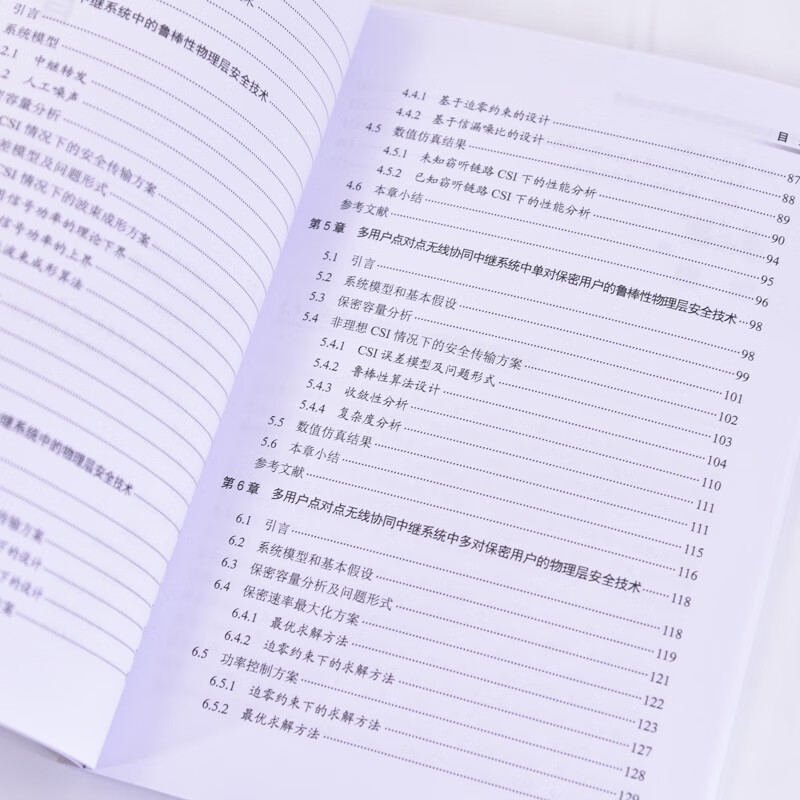 引言
中继系统中的鲁棒性物理层安全技术
系统模型
2.1 中继转发
2 人工噪声
容量分析
CSI 情况下的安全传输方案
差模型及问题形式
CSI 情况下的波束成形方案
信号功率的理论下界
信号功率的上界
波束成形算法
继系统中的物理层安全技术
传输方案
下的设计
下的设计
案
目
4.4.1 基于迫零约束的设计 87
4.4.2 基于信漏噪比的设计 88
4.5 数值仿真结果 89
4.5.1 未知窃听链路 CSI 下的性能分析 90
4.5.2 已知窃听链路 CSI 下的性能分析 94
4.6 本章小结 95
参考文献 96
第 5 章 多用户点对点无线协同中继系统中单对保密用户的鲁棒性物理层安全技术 98
5.1 引言 98
5.2 系统模型和基本假设 99
5.3 保密容量分析 101
5.4 非理想 CSI 情况下的安全传输方案 102
5.4.1 CSI 误差模型及问题形式 103
5.4.2 鲁棒性算法设计 104
5.4.3 收敛性分析 110
5.4.4 复杂度分析 111
5.5 数值仿真结果 111
5.6 本章小结 115
参考文献 116
第 6 章 多用户点对点无线协同中继系统中多对保密用户的物理层安全技术 118
6.1 引言 118
6.2 系统模型和基本假设 119
6.3 保密容量分析及问题形式 121
6.4 保密速率最大化方案 122
6.4.1 最优求解方法 123
6.4.2 迫零约束下的求解方法 127
6.5 功率控制方案 128
6.5.1 迫零约束下的求解方法 129
6.5.2 最优求解方法